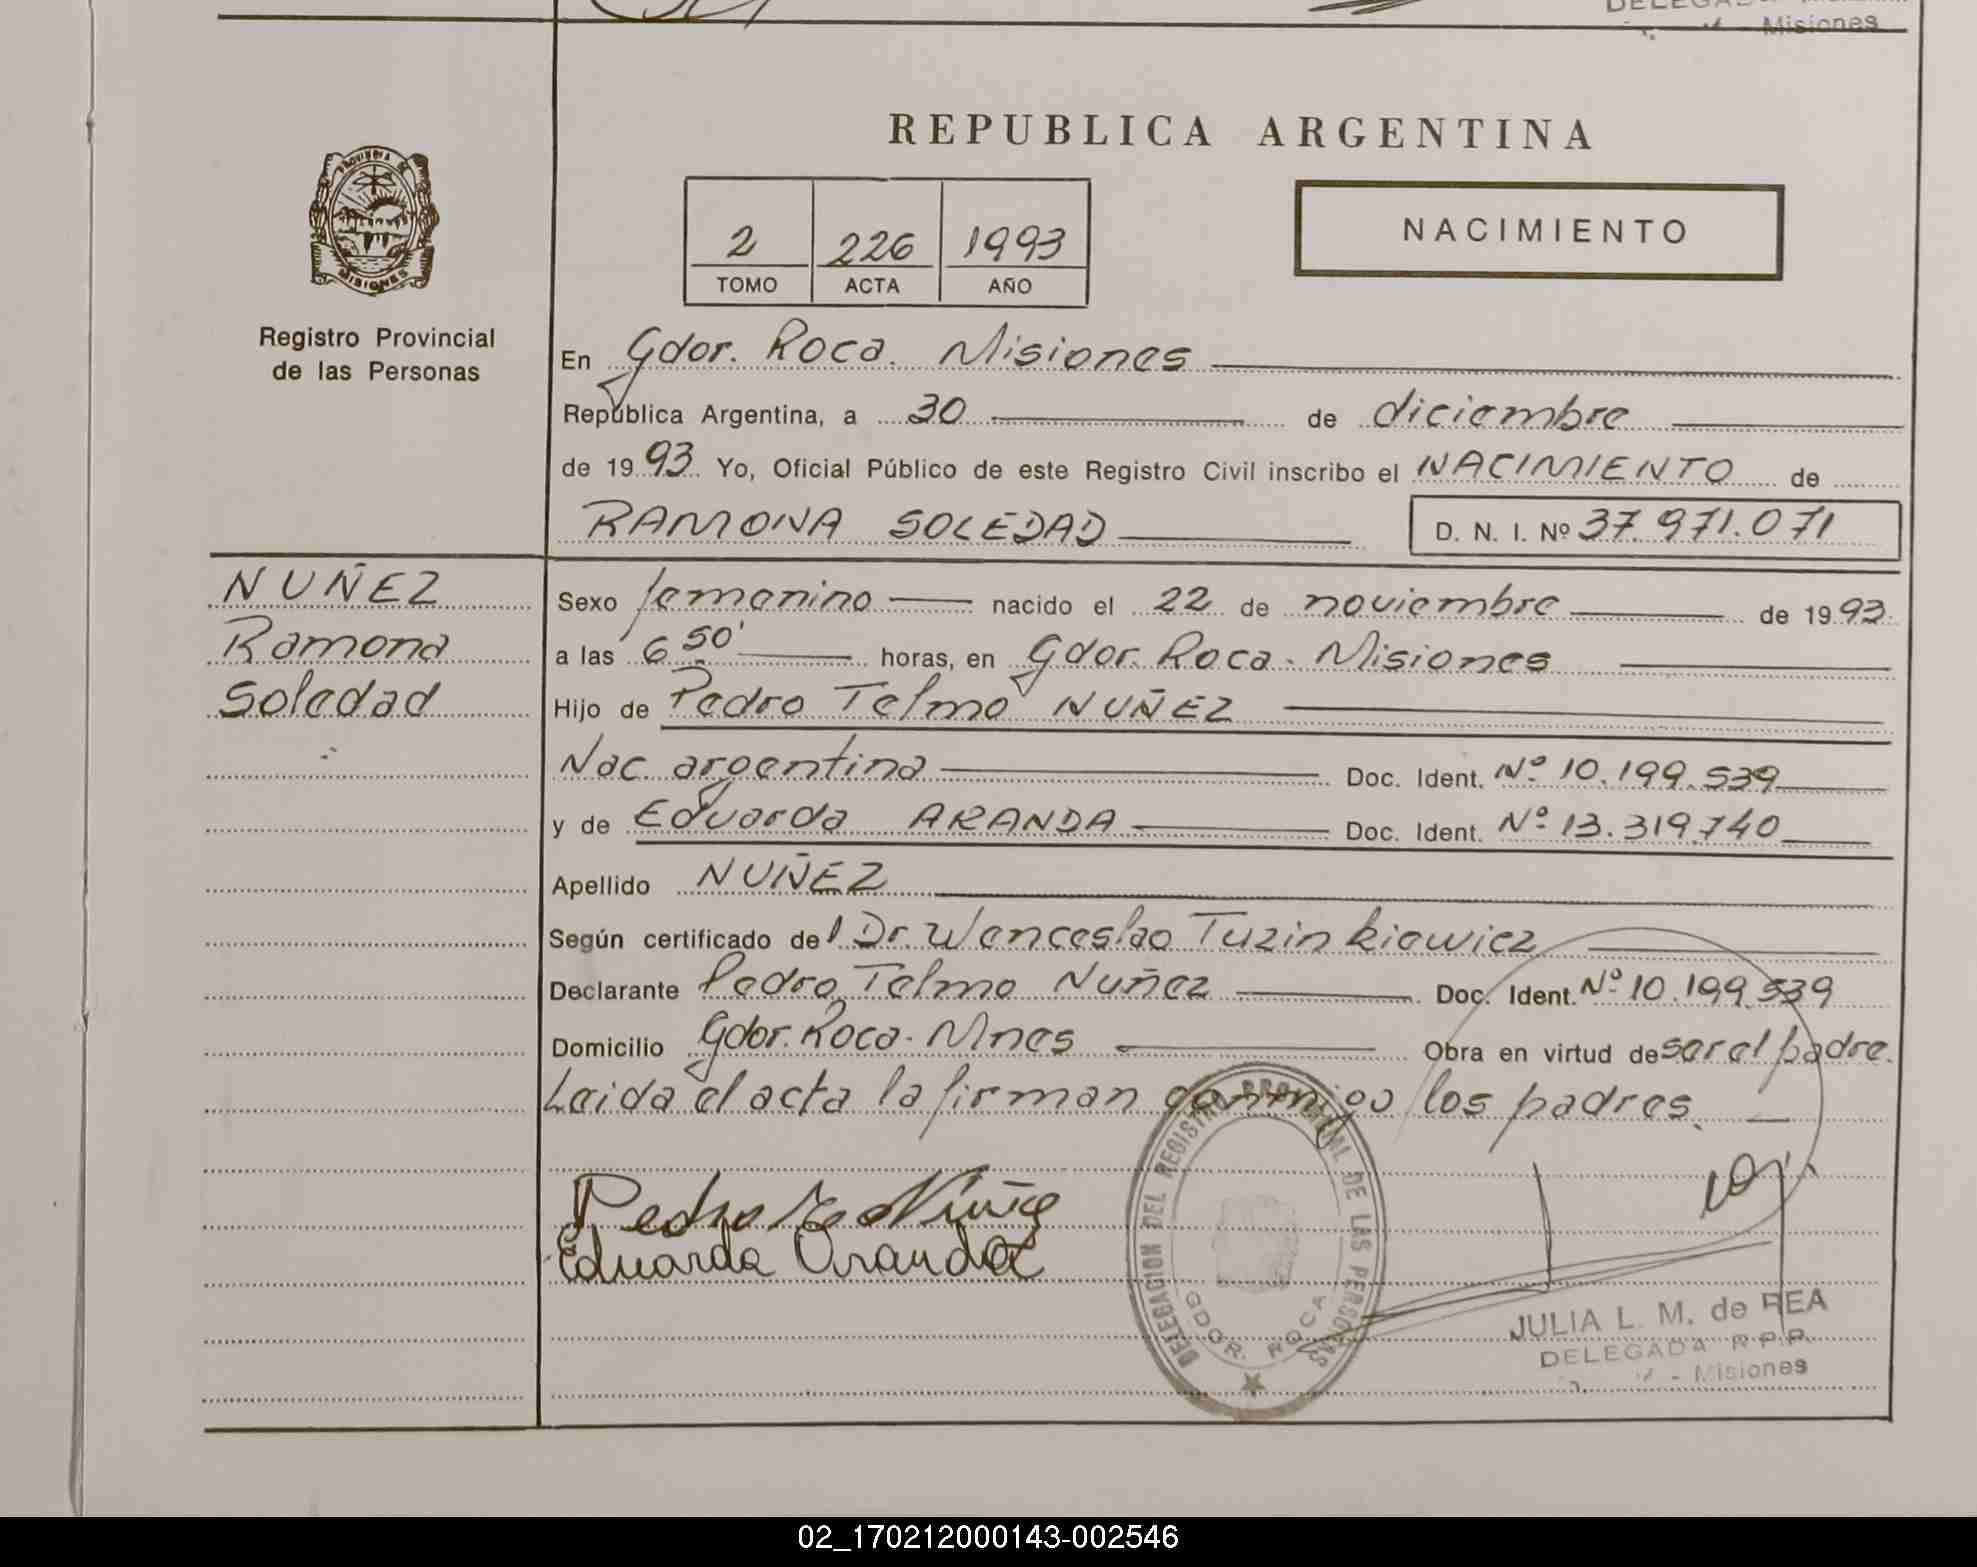 DELEGADA
Misiones
PROVINCIA DE
MISIONES
Registro Provincial
de las Personas
REPUBLICA ARGENTINA
2 226 1993
TOMO ACTA AÑO
NACIMIENTO
En Gdor. Roca. Misiones
República Argentina, a 30 de diciembre
de 1993 Yo, Oficial Público de este Registro Civil inscribo el NACIMIENTO de
RAMONA SOLEDAD D. N. I. Nº 37.971.071
NUÑEZ
Ramona
Soledad
Sexo femenino nacido el 22 de noviembre de 1993
a las 6 50' horas, en Gdor. Roca. Misiones
Hijo de Pedro Telmo NUÑEZ
Nac. argentina Doc. Ident. Nº 10.199.539
y de Eduarda ARANDA Doc. Ident. Nº 13.319.740
Apellido NUÑEZ
Según certificado del Dr. Wenceslao Tuzinkiewicz
Declarante Pedro Telmo Nuñez Doc. Ident. Nº 10.199.539
Domicilio Gdor. Roca. Mnes Obra en virtud de ser el padre.
Leida el acta la firman conmigo los padres.
Pedro T. Nuñez
Eduarda Aranda
DELEGACION DEL REGISTRO PROVINCIAL DE LAS PERSONAS
GDOR. ROCA
JULIA L. M. de REA
DELEGADA R.P.P.
- Misiones
02_170212000143-002546